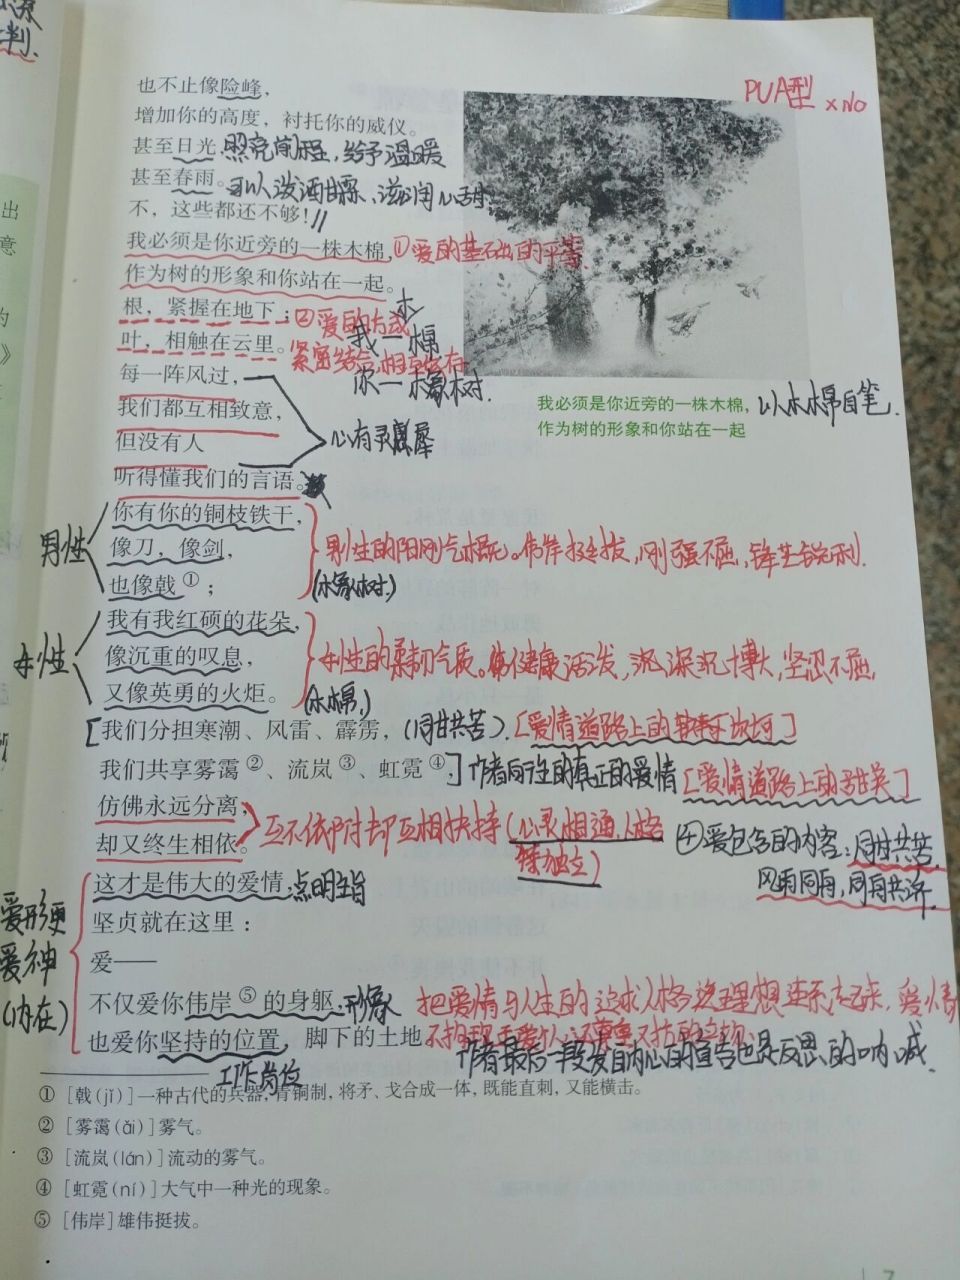 判
PUA型 × No
也不止像险峰，
增加你的高度，衬托你的威仪。
甚至日光，照亮前程，给予温暖
甚至春雨。可以泼洒甘霖、滋润心甜
不，这些都还不够！
我必须是你近旁的一株木棉，①爱的基础的平等
作为树的形象和你站在一起。
根，紧握在地下；②爱的方式
叶，相触在云里。紧密结合，相互依存
我—木棉
你—橡树.
每一阵风过，
我们都互相致意，
但没有人
心有灵犀
听得懂我们的言语。
我必须是你近旁的一株木棉，
作为树的形象和你站在一起
以木棉自笔.
男性
你有你的铜枝铁干，
像刀，像剑，
也像戟①；
男性的阳刚气概。伟岸挺拔，刚强不屈，锋芒锐利.
(橡树)
女性
我有我红硕的花朵，
像沉重的叹息，
又像英勇的火炬。
女性的柔韧气质。健康活泼，深沉博大，坚忍不屈,
(木棉)
我们分担寒潮、风雷、霹雳，(同甘共苦).[爱情道路上的坎坷]
我们共享雾霭②、流岚③、虹霓④。]作者向往的真正的爱情[爱情道路上的甜美]
仿佛永远分离，
却又终生相依。
互不依附却互相扶持(心灵相通,人格
独立)
④爱包含的内容:同甘共苦,
风雨同舟,同舟共济.
爱形更
爱神
(内在)
这才是伟大的爱情，点明主旨
坚贞就在这里：
爱——
不仅爱你伟岸⑤的身躯，形象
把爱情与人生的追求人格理想连系起来,爱情
也爱你坚持的位置，脚下的土地
作者最后一段发自内心的宣告也是反思的呐喊.
工作岗位
①［戟（jǐ）］一种古代的兵器，青铜制，将矛、戈合成一体，既能直刺，又能横击。
②［雾霭（ǎi）］雾气。
③［流岚（lán）］流动的雾气。
④［虹霓（ní）］大气中一种光的现象。
⑤［伟岸］雄伟挺拔。
7